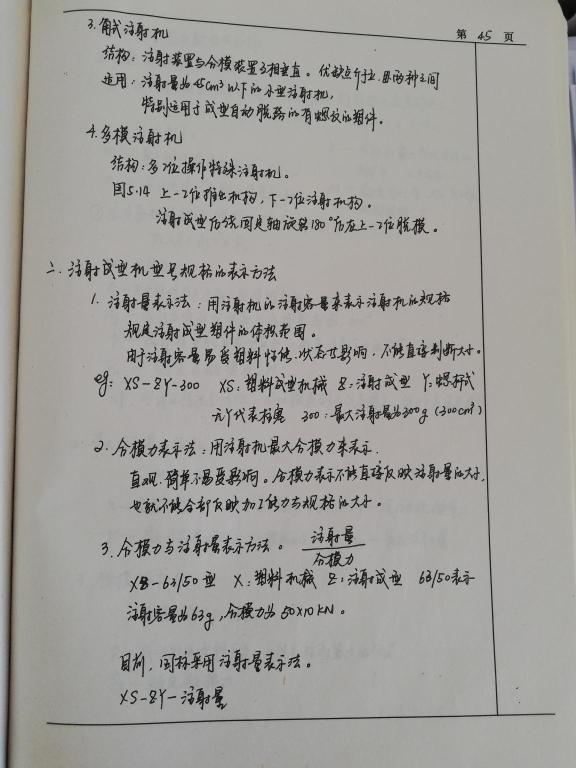 第 45 页
3. 角式注射机
结构：注射装置与合模装置互相垂直。优缺点介于立、卧两种之间
适用：注射量为45cm³以下的小型注射机，
特别适用于成型自动脱落的有螺纹的塑件。
4. 多模注射机
结构：多工位操作特殊注射机。
图5.14 上一工位推出机构，下一工位注射机构。
注射成型后绕固定轴旋转180°后在上一工位脱模。
二、注射成型机型号规格的表示方法
1. 注射量表示法：用注射机的注射容量来表示注射机的规格
规定注射成型塑件的体积范围。
由于注射容量易受塑料性能、状态等影响，不能直接判断大小。
eg: XS-ZY-300 XS：塑料成型机械 Z：注射成型 Y：螺杆式
无Y代表柱塞 300：最大注射量为300g (300cm³)
2. 合模力表示法：用注射机最大合模力来表示.
直观、简单不易受影响。合模力表示不能直接反映注射量的大小，
也就不能全部反映加工能力与规格的大小。
3. 合模力与注射量表示方法。 注射量/合模力
XZ-63/50型 X：塑料机械 Z：注射成型 63/50表示
注射容量为63g，合模力为50×10KN。
目前，国标采用注射量表示法。
XS-ZY-注射量